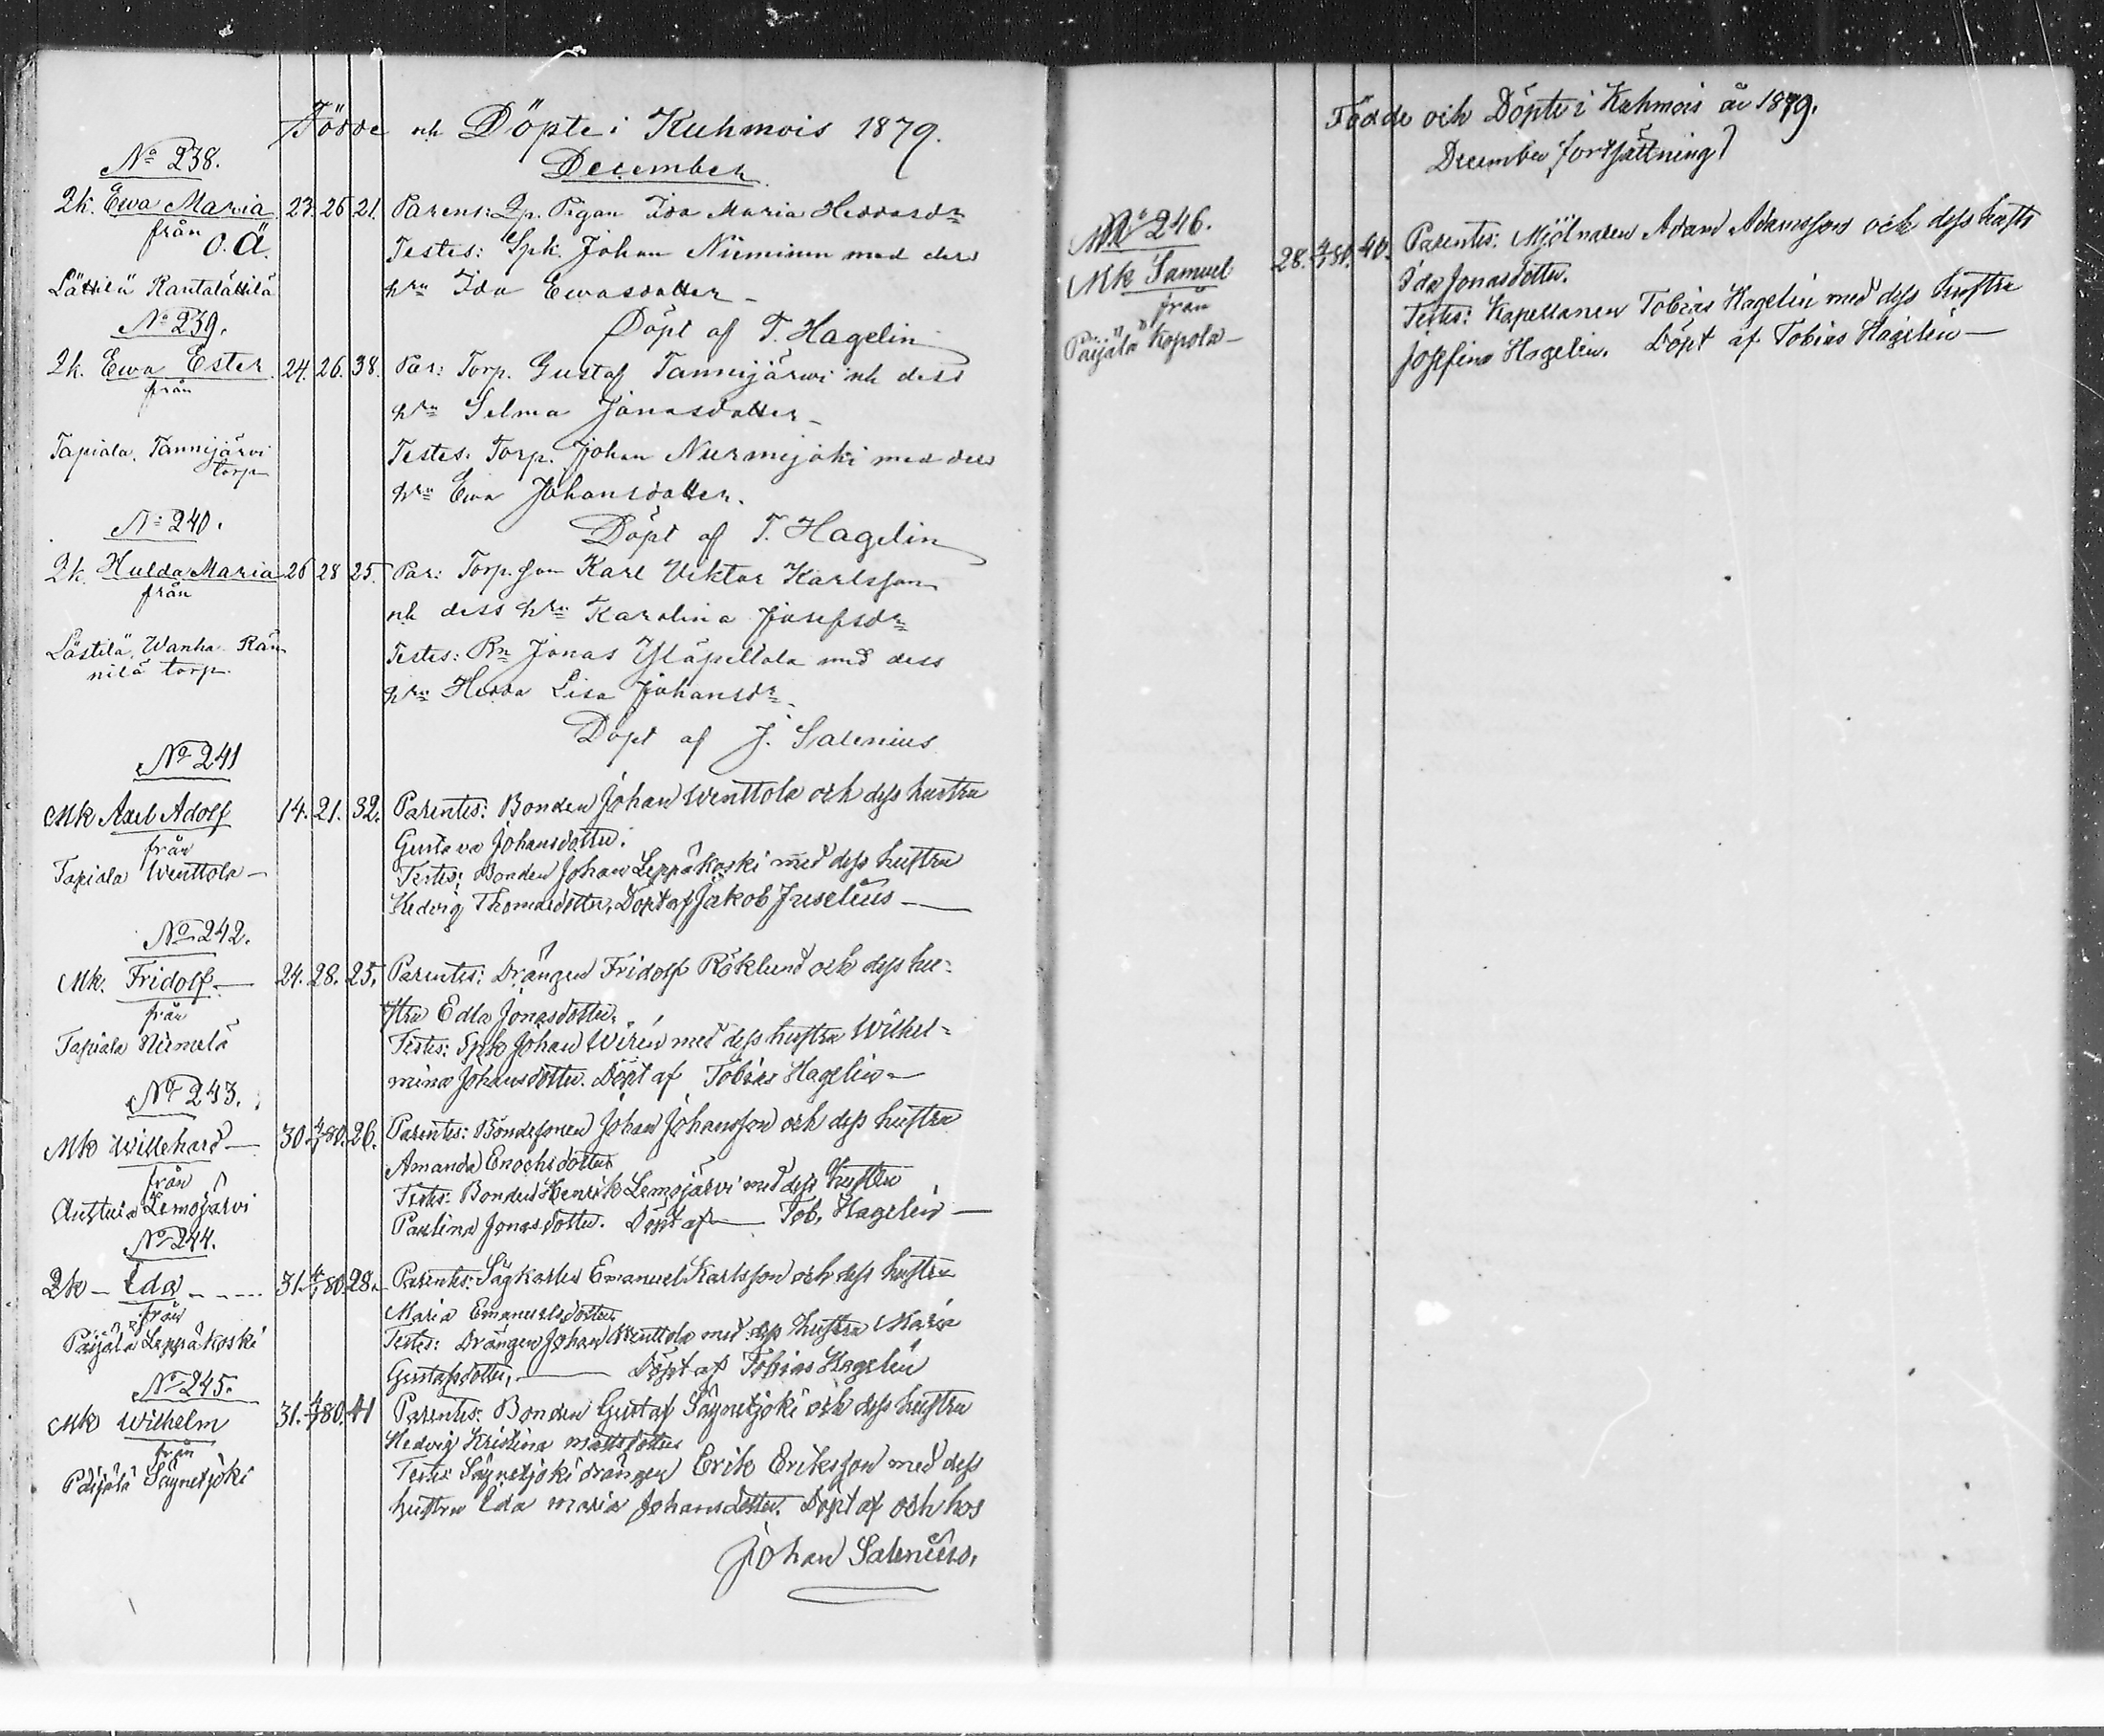 Födde och Döpte i Kuhmois 1879.
December
No 238.
Qk. Ewa Maria 23. 26. 21. Parens: Qp. Pigan Ida Maria Heddasdr
från Testes: Spk. Johan Nieminen med dess
O.Ä.
Lästilä Rantalästilä hru Ida Ewasdotter –
Döpt af T. Hagelin
No 239.
Qk. Ewa Ester 24. 26. 38. Par: Torp. Gustaf Tammijärvi och dess
från hru Selma Jonasdotter –
Tapiala, Tammijärvi Testes. Torp. Johan Nurmijoki med dess
torp hru Ewa Johansdotter.
Döpt af T. Hagelin
No 240.
Qk. Hulda Maria 26 28 25. Par: Torp. son Karl Viktor Karlsson
från och dess hru Karolina Josefsdr
Lästilä, Wanha Testes: Bn Jonas Yläpeltola med dess
nilä torp. hru Hedda Lisa Johansdr –
Döpt af J. Salenius
No 241
Mk Axel Adolf 14. 21. 32. Parentes: Bonden Johan Wenttola och dess hustru
från Gustava Johansdotter.
Tapiala Wenttola – Testes: Bonden Johan Leppäkoski med dess hustru
Hedvig Thomasdotter, Döpt af Jakob Juselius –
No 242.
Mk. Fridolf – 24. 28. 25. Parentes: Drängen Fridolf Röklund och dess hu=
från stru Edla Jonasdotter.
Tapiala Niemelä Testes: Spk Johan Wirén med dess hustru Wilhel=
mina Johansdotter. Döpt af Tobias Hagelin –
No 243.
Mk Willehard – 30. 4/1 80. 26. Parentes: Bondesonen Johan Johansson och dess hustru
från Amanda Enochsdotter
Lemojärvi Testes: Bonden Henrik Lemojärvi med dess hustru
Paulina Jonasdotter. Döpt af – Tob. Hagelin –
No 244.
Qk – Ida – – – 31. 4/1 80 28. Parentes: Sågkarlen Emanuel Karlsson och dess hustru
från Maria Emanuelsdotter
Päijälä Leppäkoski Testes: Drängen Johan Wenttola med dess hustru Maria
Gustafsdotter, – Döpt af Tobias Hagelin
No 245.
Mk Wilhelm 31. 4/1 80. 41 Parentes: Bonden Gustaf Säynetjoki och dess hustru
från Hedvig Kristina Mattsdotter
Päijälä Säynetjoki Testes Säynetjoki drängen Erik Eriksson med dess
hustru Ida Maria Johansdotter. Döpt af och hos
Johan Salenius.
Födde och Döpte i Kuhmois år 1879.
December fortsättning
No 246.
Mk Samuel 28. 4/1 80. 40. Parentes: Mjölnaren Adam Adamsson och dess hustr
från Ida Jonasdotter.
Päijälä Kopola – Testes: Kapellanen Tobias Hagelin med dess hustru
Josefina Hagelin. Döpt af Tobias Hagelin –